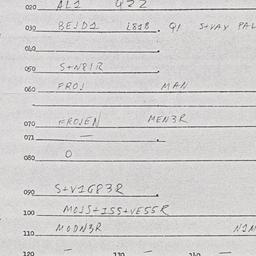 020 AL1 422
030 BEJD1 1818 Q1 S+VAY PAL
040
050 S+N81R
060 FROJ MAN
070 FROJEN MEN3R
071 —
080 O
090 S+V1GP3R
100 MOJS+1SS+VE55R
110 MODN3R N1M
120 — 130 — 140 —